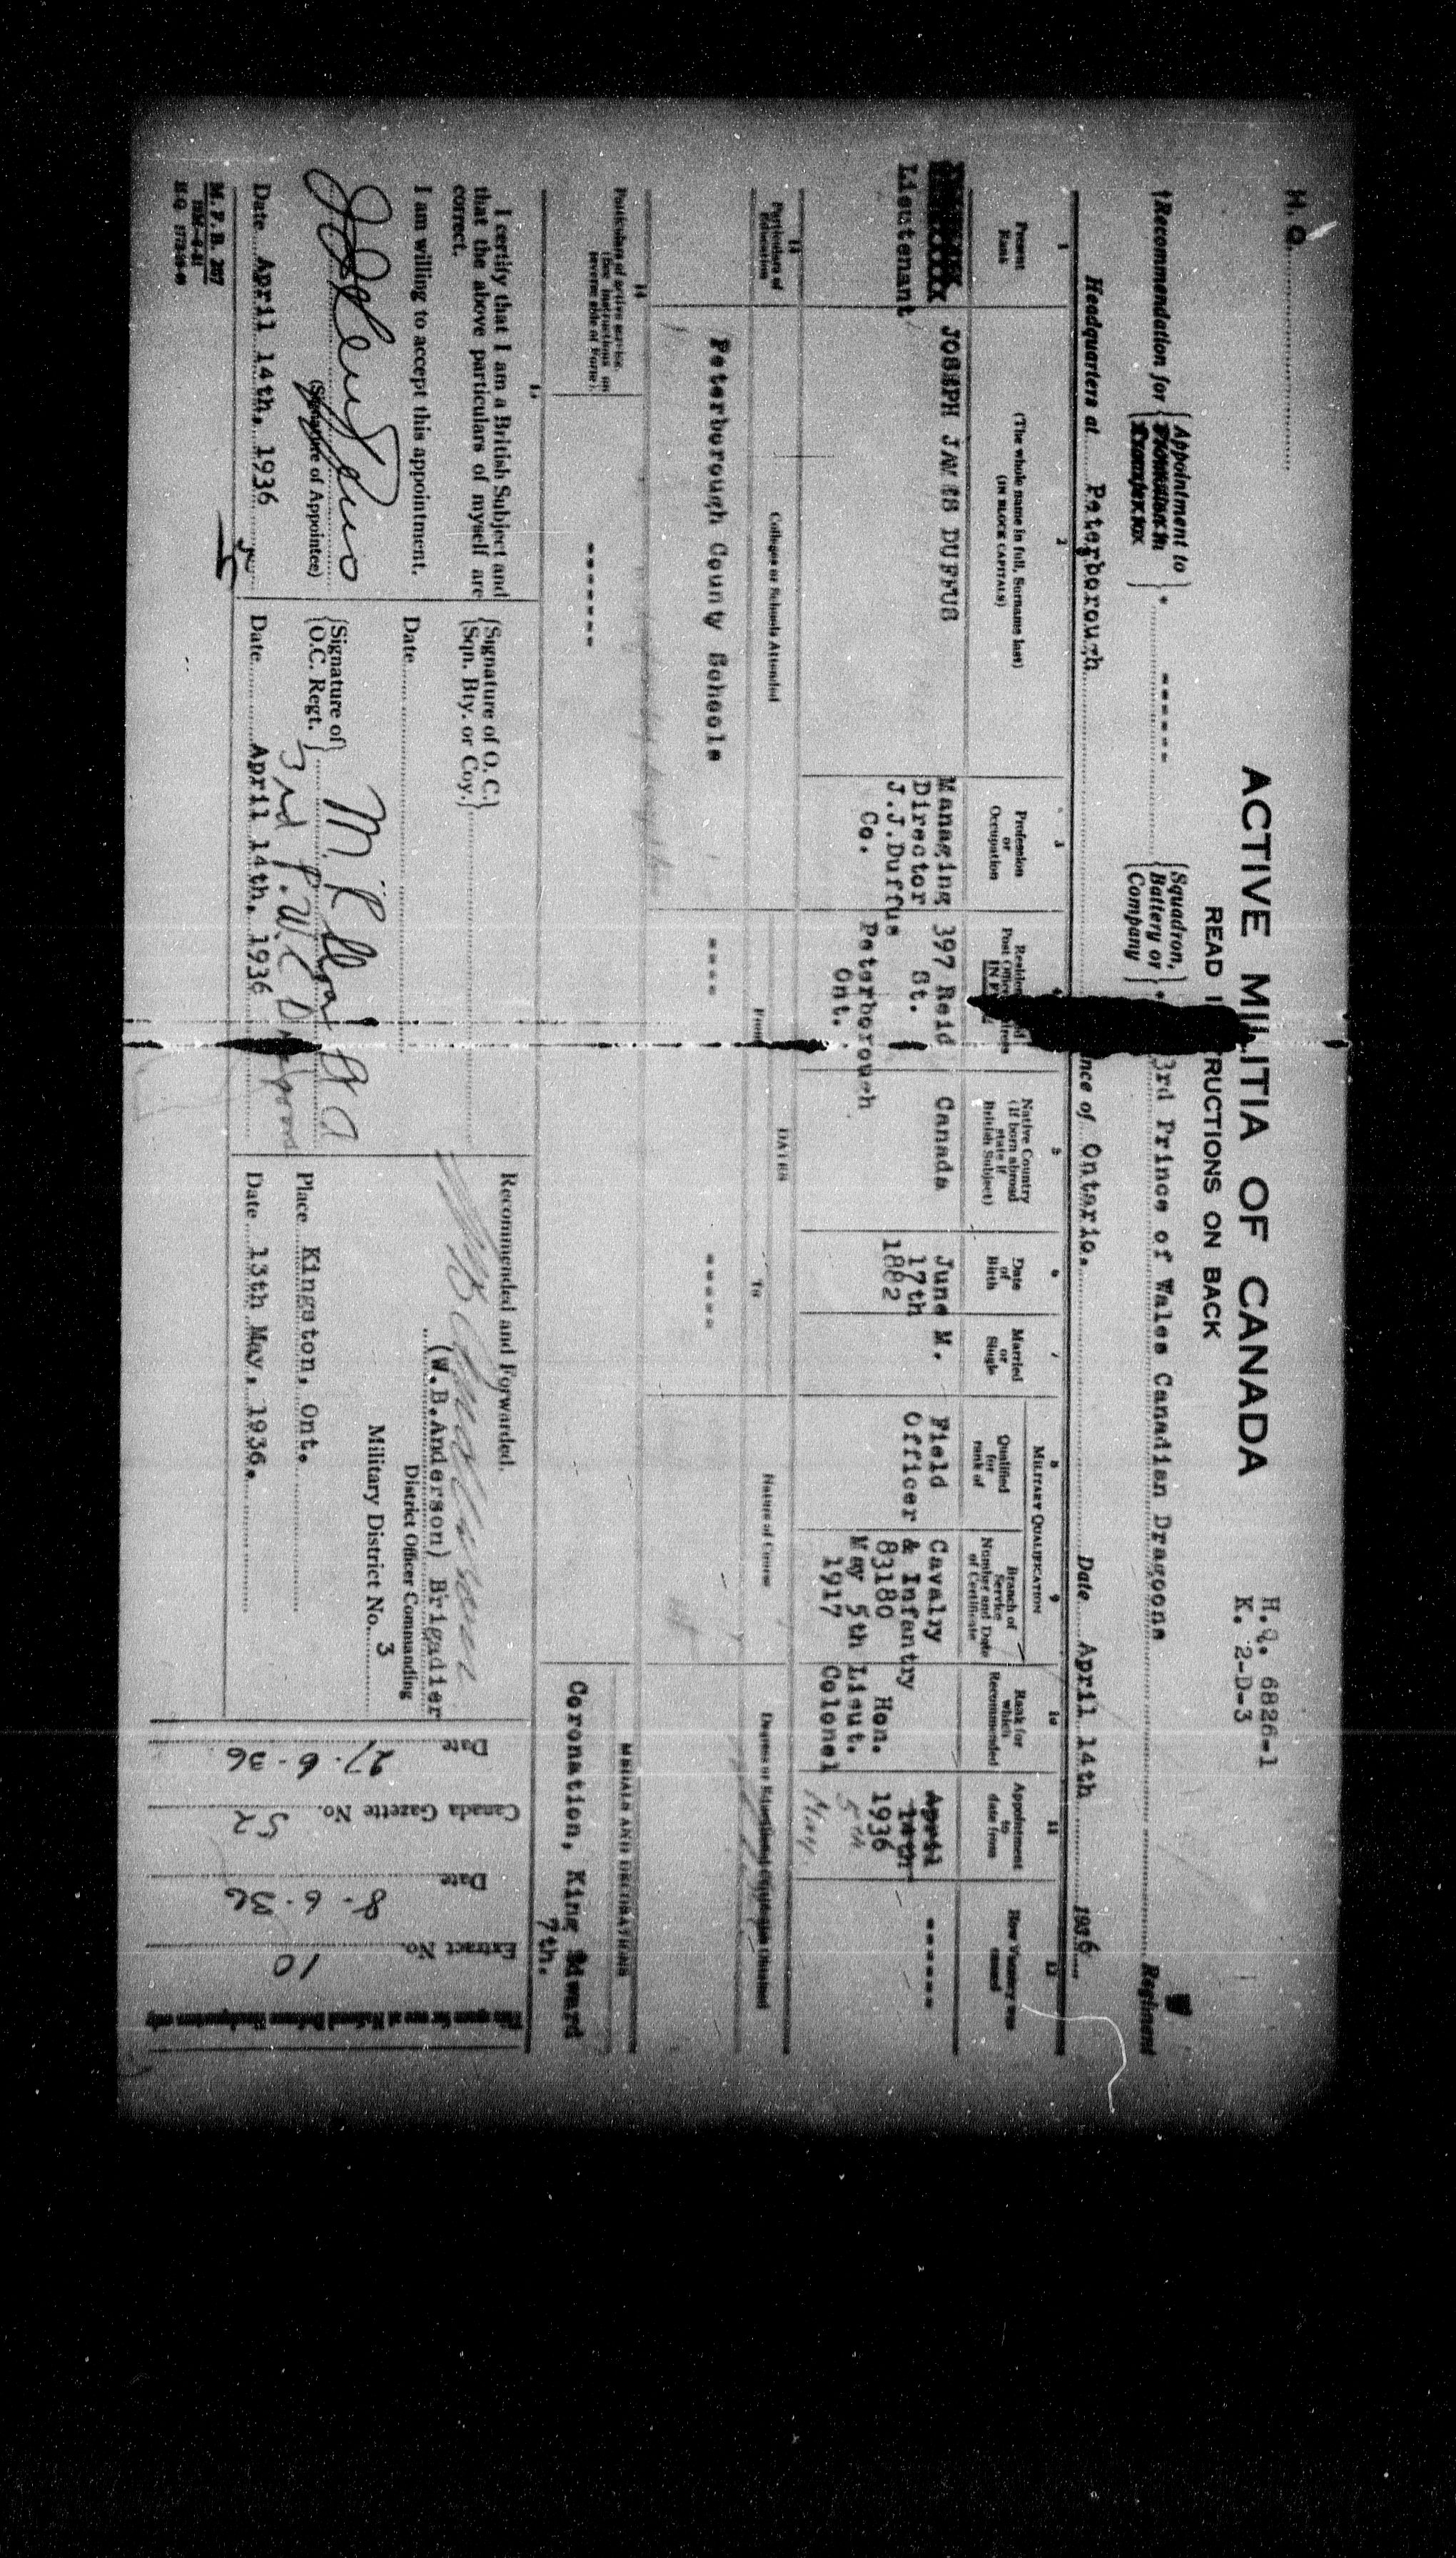 H. Q.
ACTIVE MILITIA OF CANADA
H.Q. 6826-1
K. 2-D-3
READ INSTRUCTIONS ON BACK
†Recommendation for { Appointment to } * ----- { Squadron, Battery or Company } * 3rd Prince of Wales Canadian Dragoons Regiment
Headquarters at Peterborough
nce of Ontario. Date April 14th 1936
1
Present Rank
2
(The whole name in full, Surname last)
(IN BLOCK CAPITALS)
3
Profession or Occupation
5
Native Country (if born abroad state if British Subject)
6
Date of Birth
7
Married or Single
MILITARY QUALIFICATION
8
Qualified for rank of
9
Branch of Service Number and Date of Certificate
10
Rank for which Recommended
11
Appointment to date from
12
How Vacancy was caused
Lieutenant
JOSEPH JAMES DUFFUS
Managing Director J.J.Duffus Co.
397 Reid St. Peterborough Ont.
Canada
June 17th 1882
M.
Field Officer
Cavalry & Infantry 83180 May 5th 1917
Hon. Lieut. Colonel
April 14th 1936
5th May.
------
13
Particulars of Education
Colleges or Schools Attended
DATES
From
To
Nature of Course
Peterborough County Schools
----
-----
14
Particulars of active service. (See instructions on reverse side of Form).
------
MEDALS AND DECORATIONS
Coronation, King Edward 7th.
I certify that I am a British Subject and
that the above particulars of myself are
correct.
I am willing to accept this appointment.
(Signature of Appointee)
Date April 14th. 1936
M. F. B. 207
{Signature of O. C. Sqn. Bty. or Coy.}
Date
{Signature of O.C. Regt.}
3rd P.W.C D
Date April 14th. 1936
Recommended and Forwarded.
(W.B.Anderson) Brigadier
District Officer Commanding
Military District No. 3
Place Kingston, Ont.
Date 13th May, 1936.
This space for use at National Defence Headquarters only
Extract No. 10
Date 8-6-36
Canada Gazette No. 52
Date 27-6-36